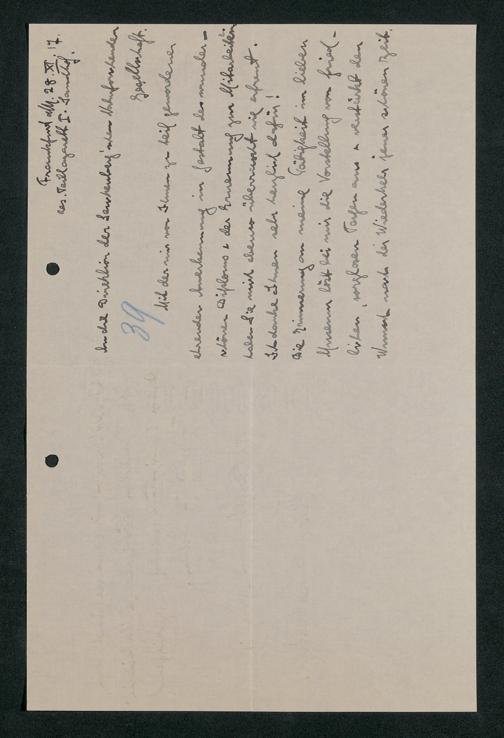 Frankfurt a/M. 28. XI. 17.
Res. Teillazarett I.
An die Direktion der Senckenberg'schen Naturforschenden
Gesellschaft.
39
Mit der mir von Ihnen zu teil gewordenen
ehrenden Anerkennung in Gestalt des wunder-
schönen Diploms & der Ernennung zum Mitarbeiter
haben Sie mich ebenso überrascht wie erfreut.
Ich danke Ihnen sehr herzlich dafür!
Die Erinnerung an meine Tätigkeit im lieben
Museum löst bei mir die Vorstellung von fried-
lichen, sorglosen Tagen aus & verstärkt den
Wunsch nach der Wiederkehr jener schönen Zeit.